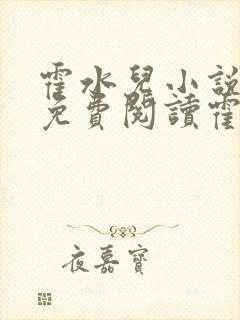 霍水兒小說
免費閱讀霍
夜嘉寶